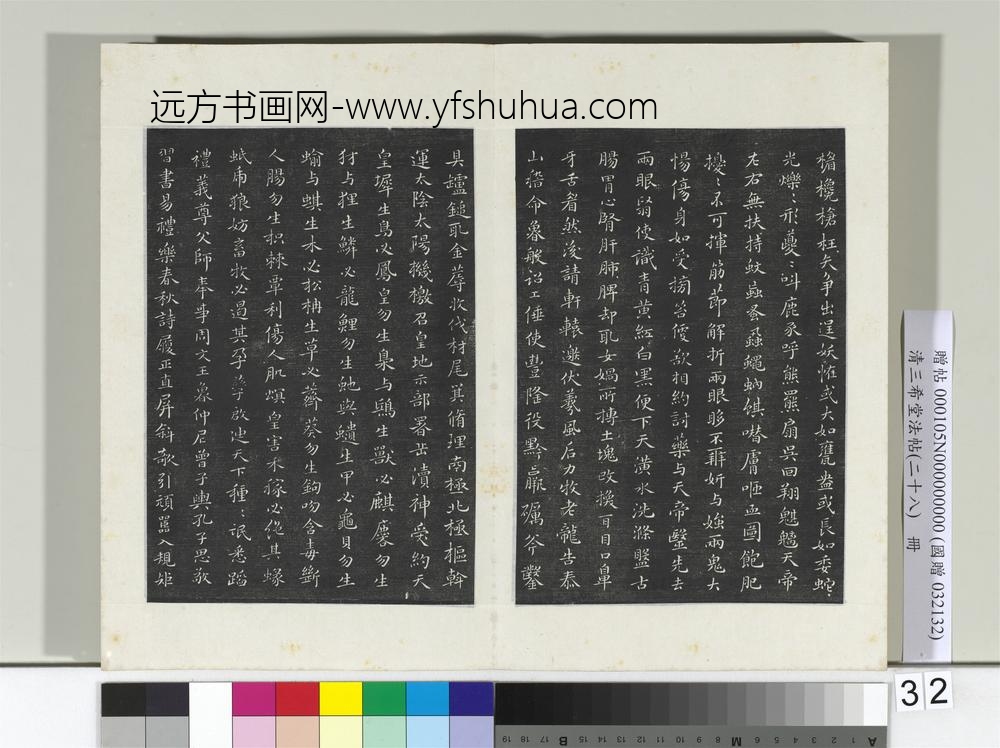 远方书画网-www.yfshuhua.com
欃槍枉矢爭出逞妖怪或大如甕盎或長如委蛇
光爍〻形躨〻叫鹿豕呼熊羆扇吳回翔魃魖天帝
左右無扶持蚊蝱蚤蝨蠅蚋蜞噆膚咂血圖飽肥
擾〻不可揮筋節解折兩眼眵不辨妍与媸兩鬼大
惕傷身如受搒笞便欲相約討藥与天帝醫先去
兩眼翳使識青黃紅白黑便下天潢水洗滌盤古
腸胃心腎肝肺脾却取女媧所摶土塊改換耳目口鼻
牙舌眉然後請軒轅邀伏羲風后力牧老龍吉泰
山稽命魯般詔工倕使豐隆役黔羸礪斧鑿
具鑪鎚取金蓐收伐材尾箕脩理南極北極樞斡
運太陰太陽機檄召皇地示部署岳瀆神受約天
皇墀生鳥必鳳皇勿生梟与鴟生獸必麒麟勿生
豺与狸生鱗必龍鯉勿生虵與生甲必龜貝勿生
蝓与蜞生木必松柟生草必薺葵勿生鉤吻含毒斷
人腸勿生枳棘覃利傷人肌螟皇害禾稼必絕其蝝
蚳虎狼妨畜牧必遏其孕孳啟迪天下種〻氓悉蹈
禮義尊父師奉事周文王魯仲尼曾子輿孔子思敬
習書易禮樂春秋詩履正直屏斜欹引頑嚚入規矩
贈帖 000105N000000000 (國贈 032132)
清三希堂法帖(二十八) 冊
32